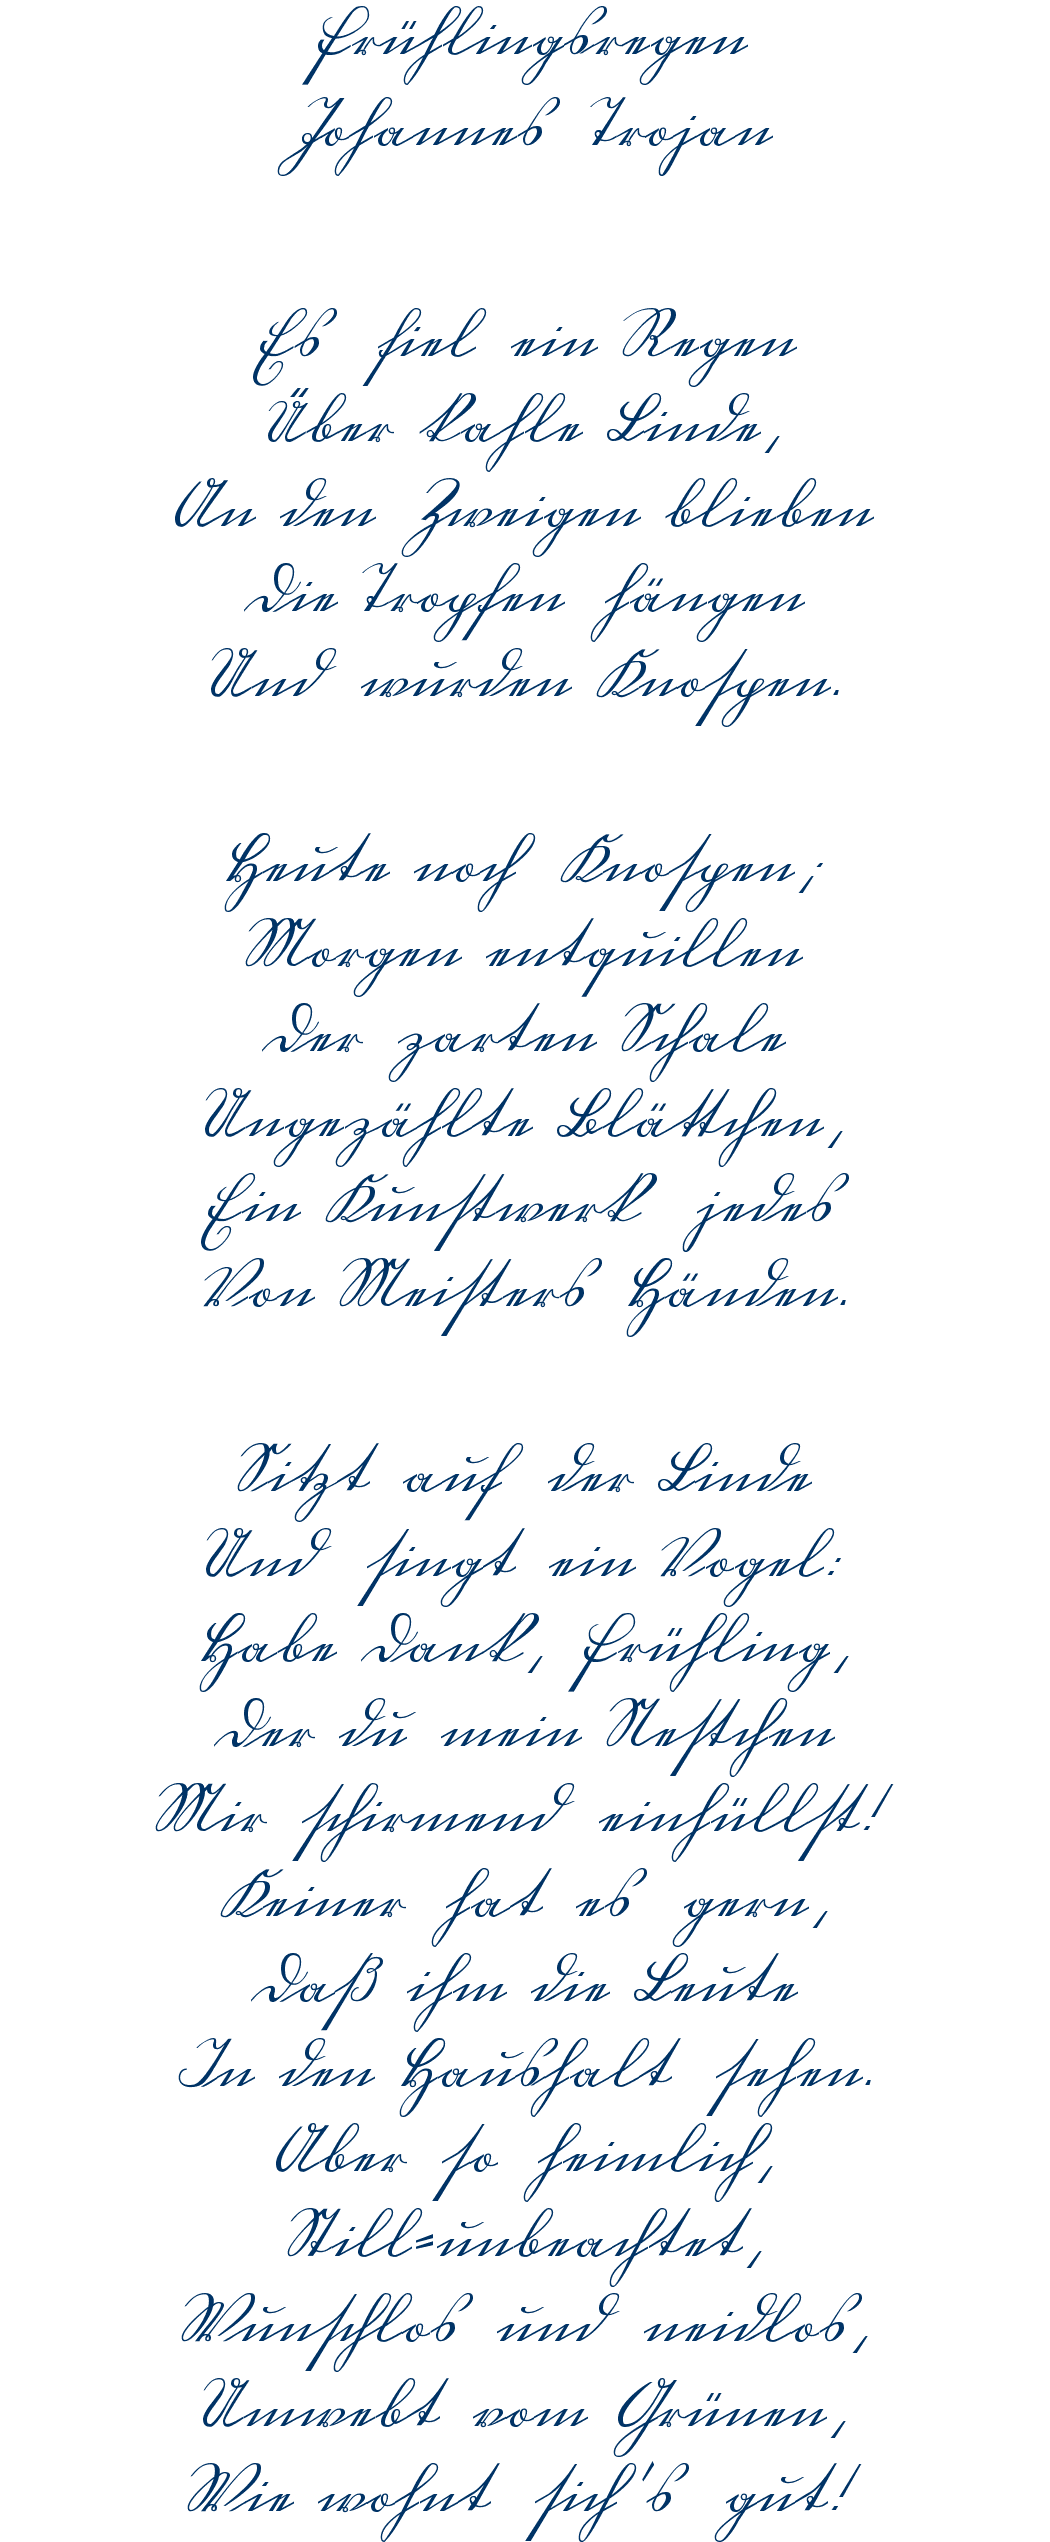 Frühlingsregen
Johannes Trojan
Es fiel ein Regen
Über kahle Linde,
An den Zweigen blieben
Die Tropfen hängen
Und wurden Knospen.
Heute noch Knospen;
Morgen entquillen
Der zarten Schale
Ungezählte Blättchen,
Ein Kunstwerk jedes
Von Meisters Händen.
Sitzt auf der Linde
Und singt ein Vogel:
Habe Dank, Frühling,
Der du mein Nestchen
Mir schirmend einhüllst!
Keiner hat es gern,
Daß ihm die Leute
In den Haushalt sehen.
Aber so heimlich,
Still=unbeachtet,
Wunschlos und neidlos,
Umwebt vom Grünen,
Wie wohnt sich's gut!